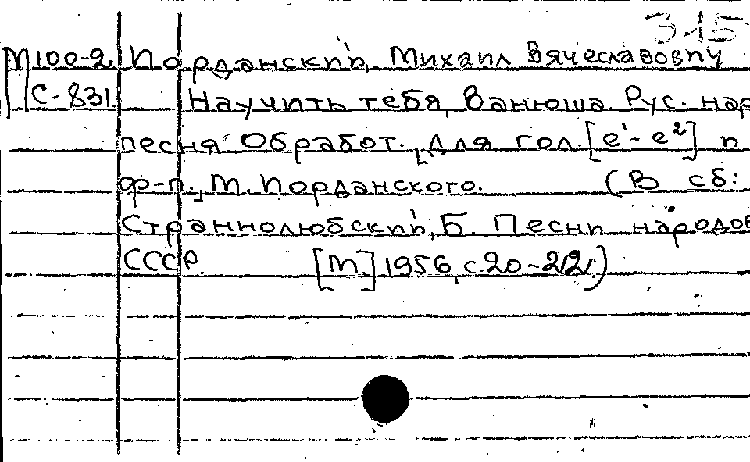 345
М100-2 Иорданский, Михаил Вячеславови
С-831 Научить тебя, Ванюша. Рус. нар
песня. Обработ. для гол. [e¹-e²] и
ф-п. М. Иорданского. (В сб:
Страннолюбский, Б. Песни народов
СССР [М] 1956, с.20-22.)